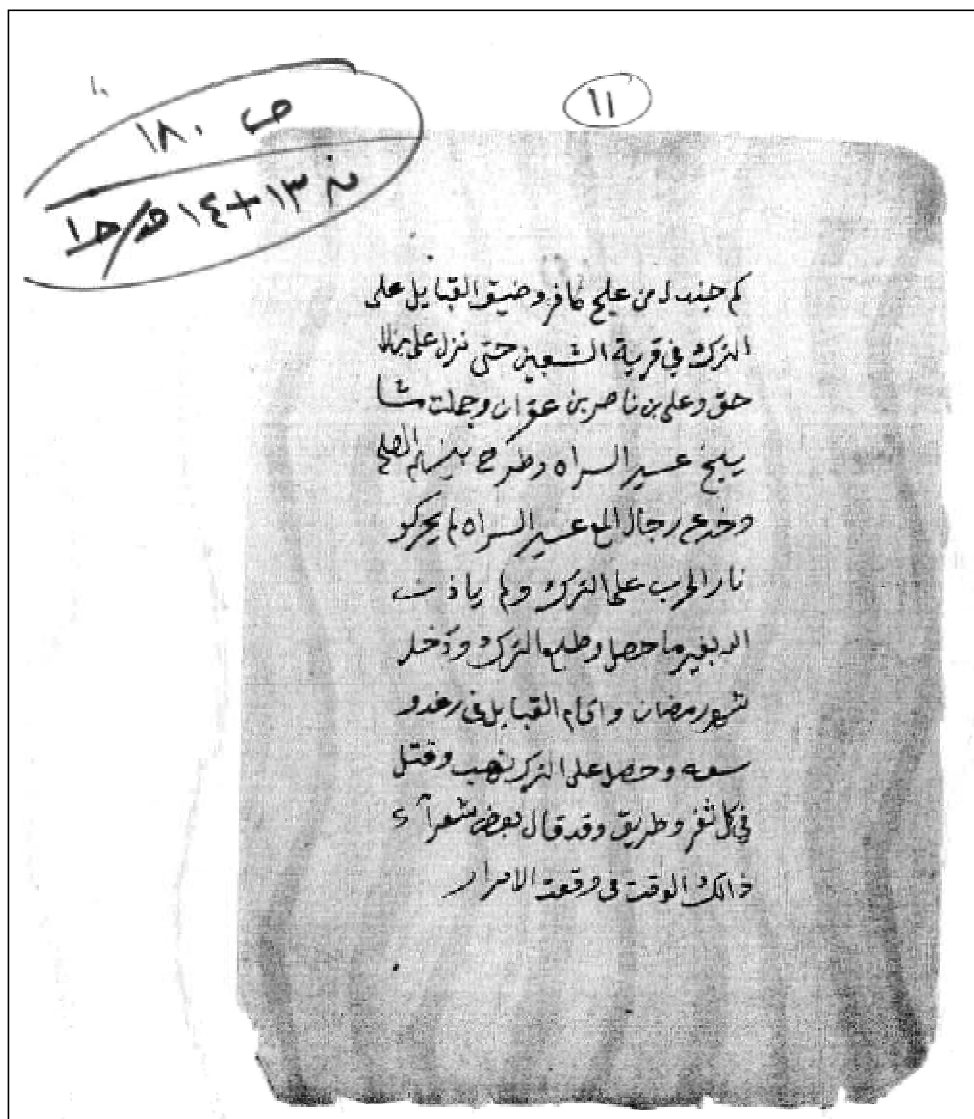 ١١
ص ١٨٠
١٣+١٤
كم جندله من علج كافر وضيق القبايل على
الترك في قرية الشعبين حتى نزل على بن لا
حق وعلى بن ناصر بن عوان وجملت مشا
يخ عسير السراه وطرح بينهم الصلح
وخدع رجال المع عسير السراه لم يحركو
نار الحرب على الترك ولم ياذن
الد بغير ما حصل وطلع الترك ودخل
شهر رمضان واقام القبايل في رغد و
سعه وحصل على الترك نهب وقتل
في كل ثغر وطريق وقد قال بعض شعرآء
ذالك الوقت في وقعت الامرار